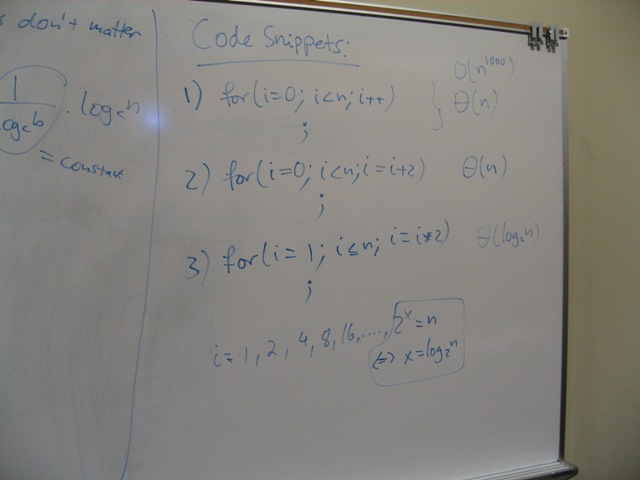 s don't matter
1
log_c b · log_c n
= constant
Code Snippets:
O(n^1000)
1) for(i=0; i<n; i++) } Θ(n)
;
2) for(i=0; i<n; i=i+2) Θ(n)
;
3) for(i=1; i≤n; i=i*2) Θ(log₂n)
;
i=1, 2, 4, 8, 16, ..., 2^x = n
⇔ x = log₂n